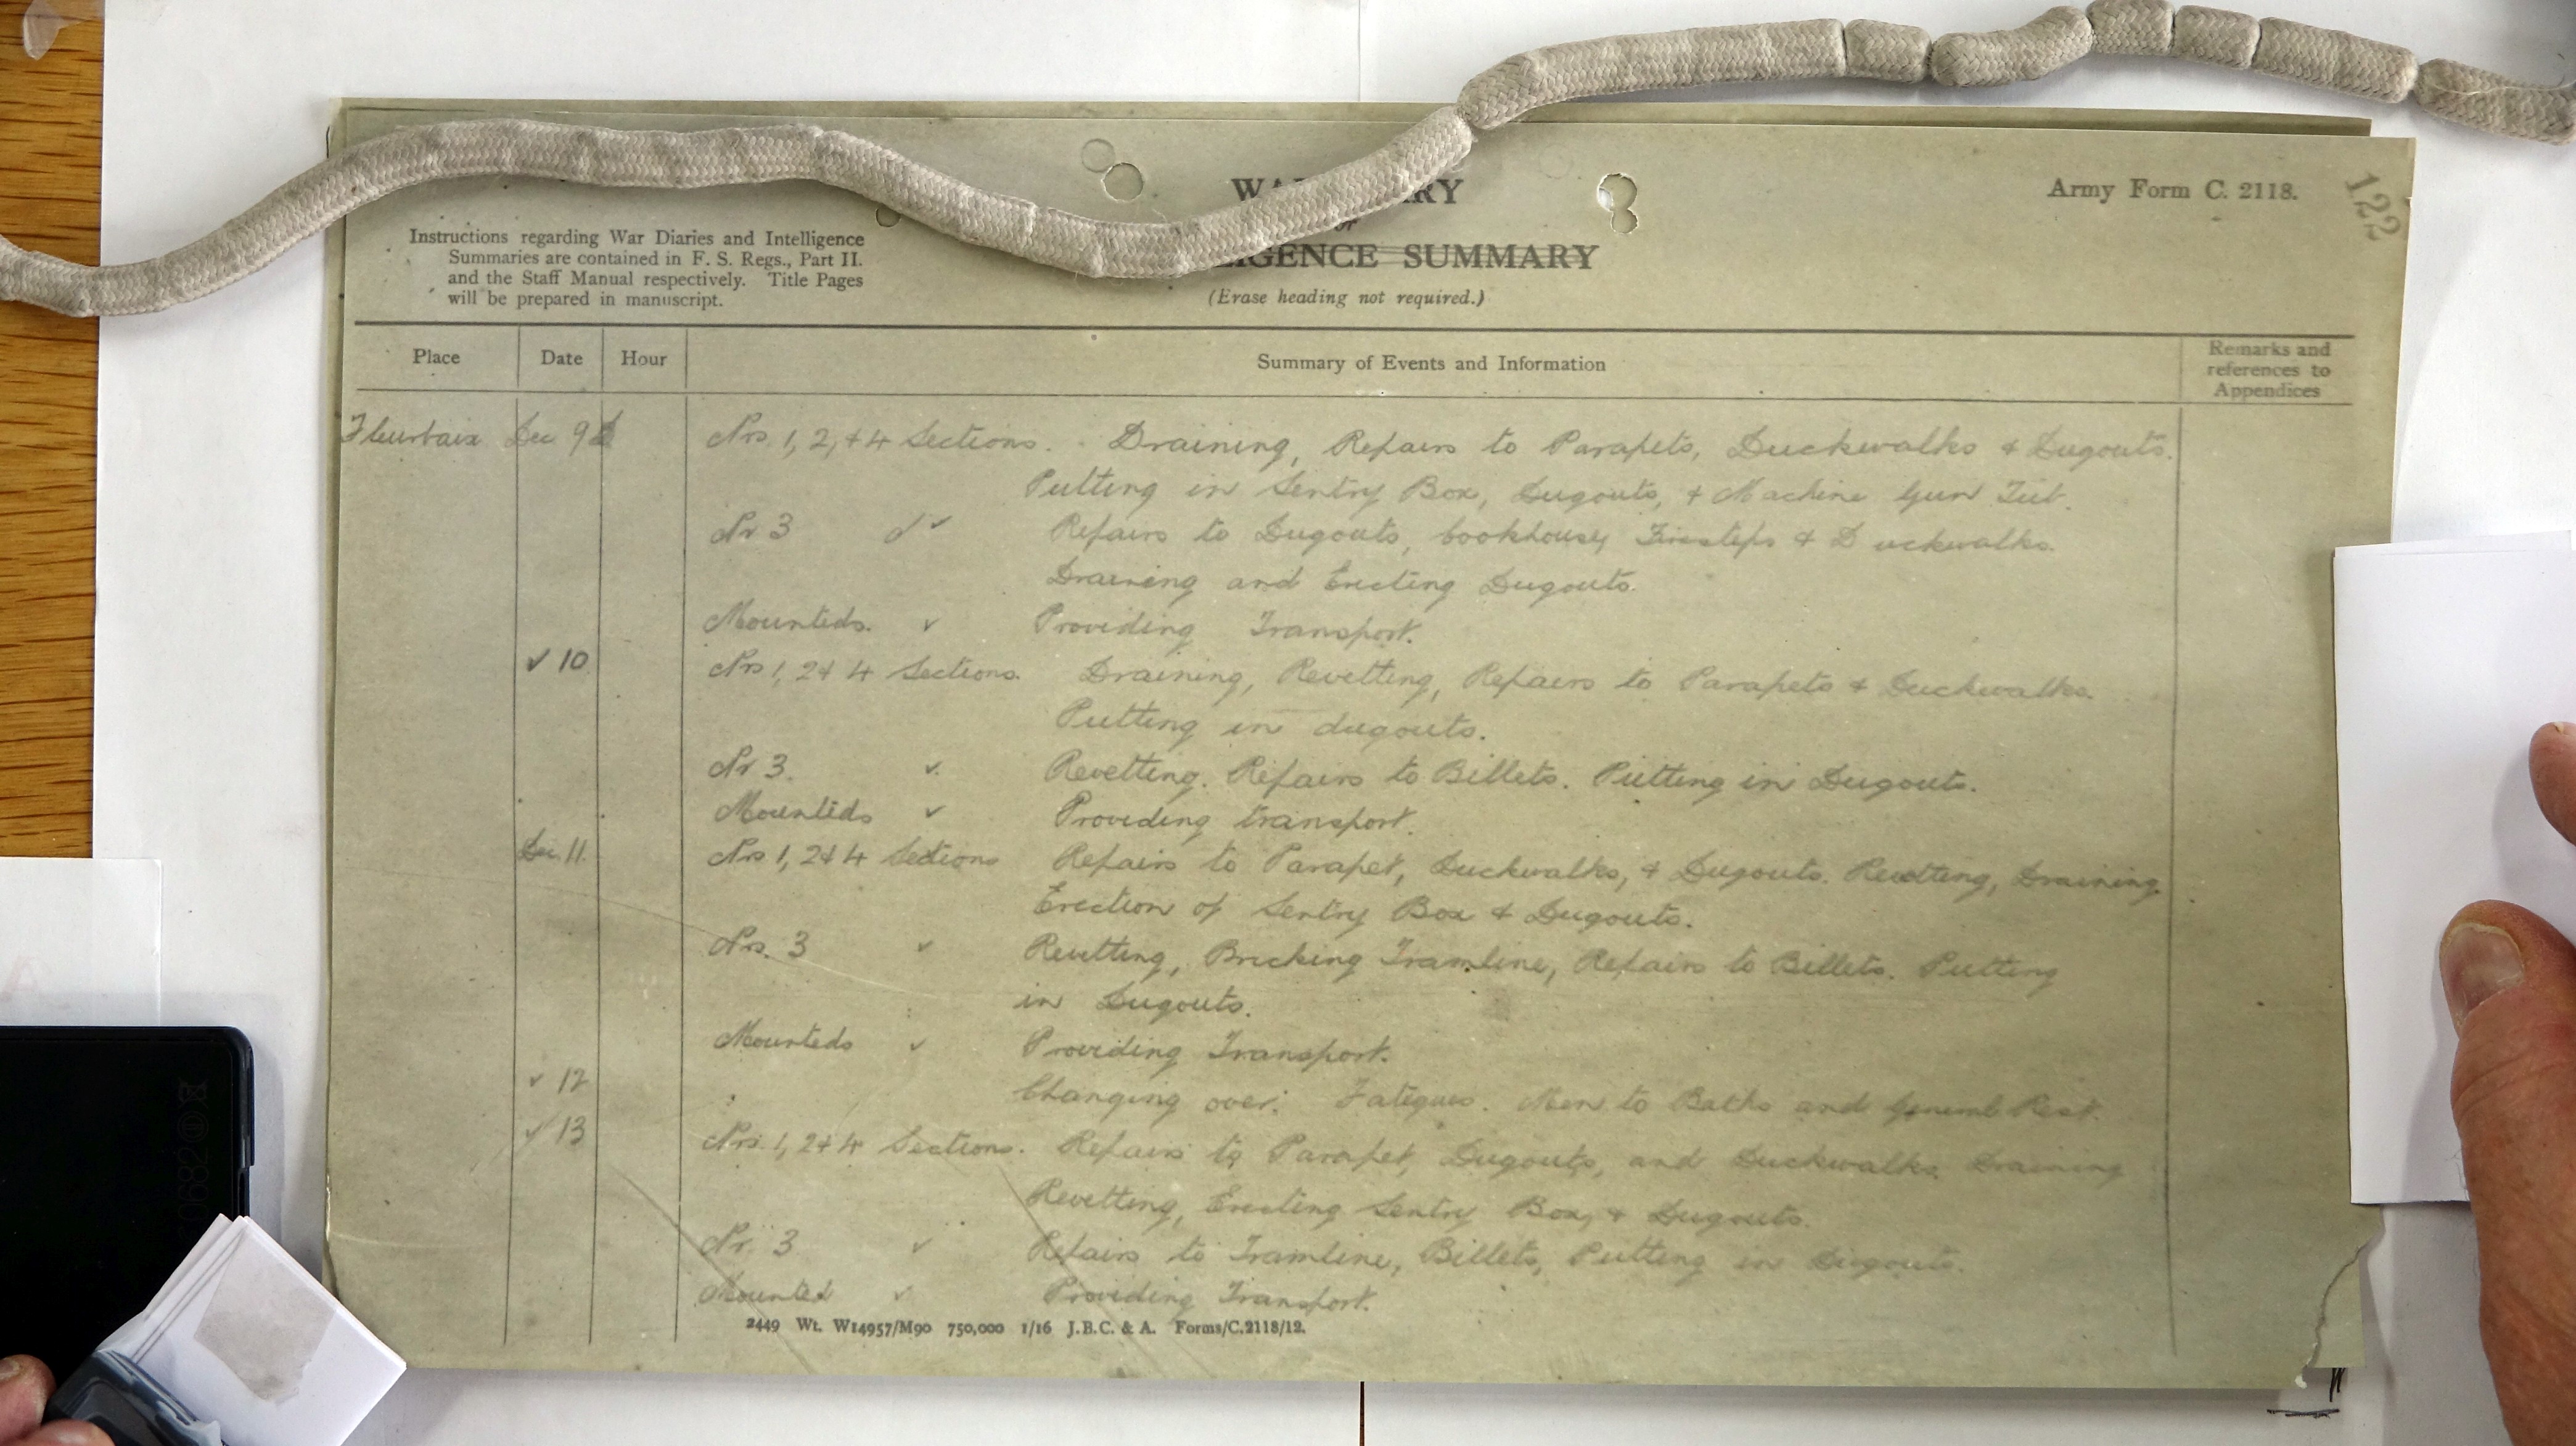 WA RY
Army Form C. 2118.
122
or
Instructions regarding War Diaries and Intelligence
Summaries are contained in F. S. Regs., Part II.
and the Staff Manual respectively. Title Pages
will be prepared in manuscript.
LIGENCE SUMMARY
(Erase heading not required.)
Place Date Hour Summary of Events and Information Remarks and references to Appendices
Fleurbaix Dec 9 Nrs. 1, 2, & 4 Sections. Draining, Repairs to Parapets, Duckwalks & Dugouts.
Putting in Sentry Box, Dugouts, & Machine Gun
Nr 3 do Repairs to Dugouts, Cookhouse, Firesteps & Duckwalks.
Draining and Erecting Dugouts.
Mounteds. " Providing Transport.
" 10 Nrs 1, 2 & 4 Sections. Draining, Revetting, Repairs to Parapets & Duckwalks.
Putting in dugouts.
Nr 3. " Revetting. Repairs to Billets. Putting in Dugouts.
Mounteds " Providing transport.
Dec. 11. Nrs 1, 2 & 4 Sections Repairs to Parapet, Duckwalks, & Dugouts. Revetting, Draining.
Erection of Sentry Box & Dugouts.
Nrs. 3 " Revetting, Bricking Tramline, Repairs to Billets. Putting
in Dugouts.
Mounteds " Providing Transport.
" 12 Changing over. Fatigues. Men to Baths and General Rest.
" 13 Nrs. 1, 2 & 4 Sections. Repairs to Parapet, Dugouts, and Duckwalks. Draining
Revetting, Erecting Sentry Box, & Dugouts.
Nr. 3 " Repairs to Tramline, Billets, Putting in Dugouts.
Mounted " Providing Transport.
2449 Wt. W14957/M90 750,000 1/16 J.B.C. & A. Forms/C.2118/12.